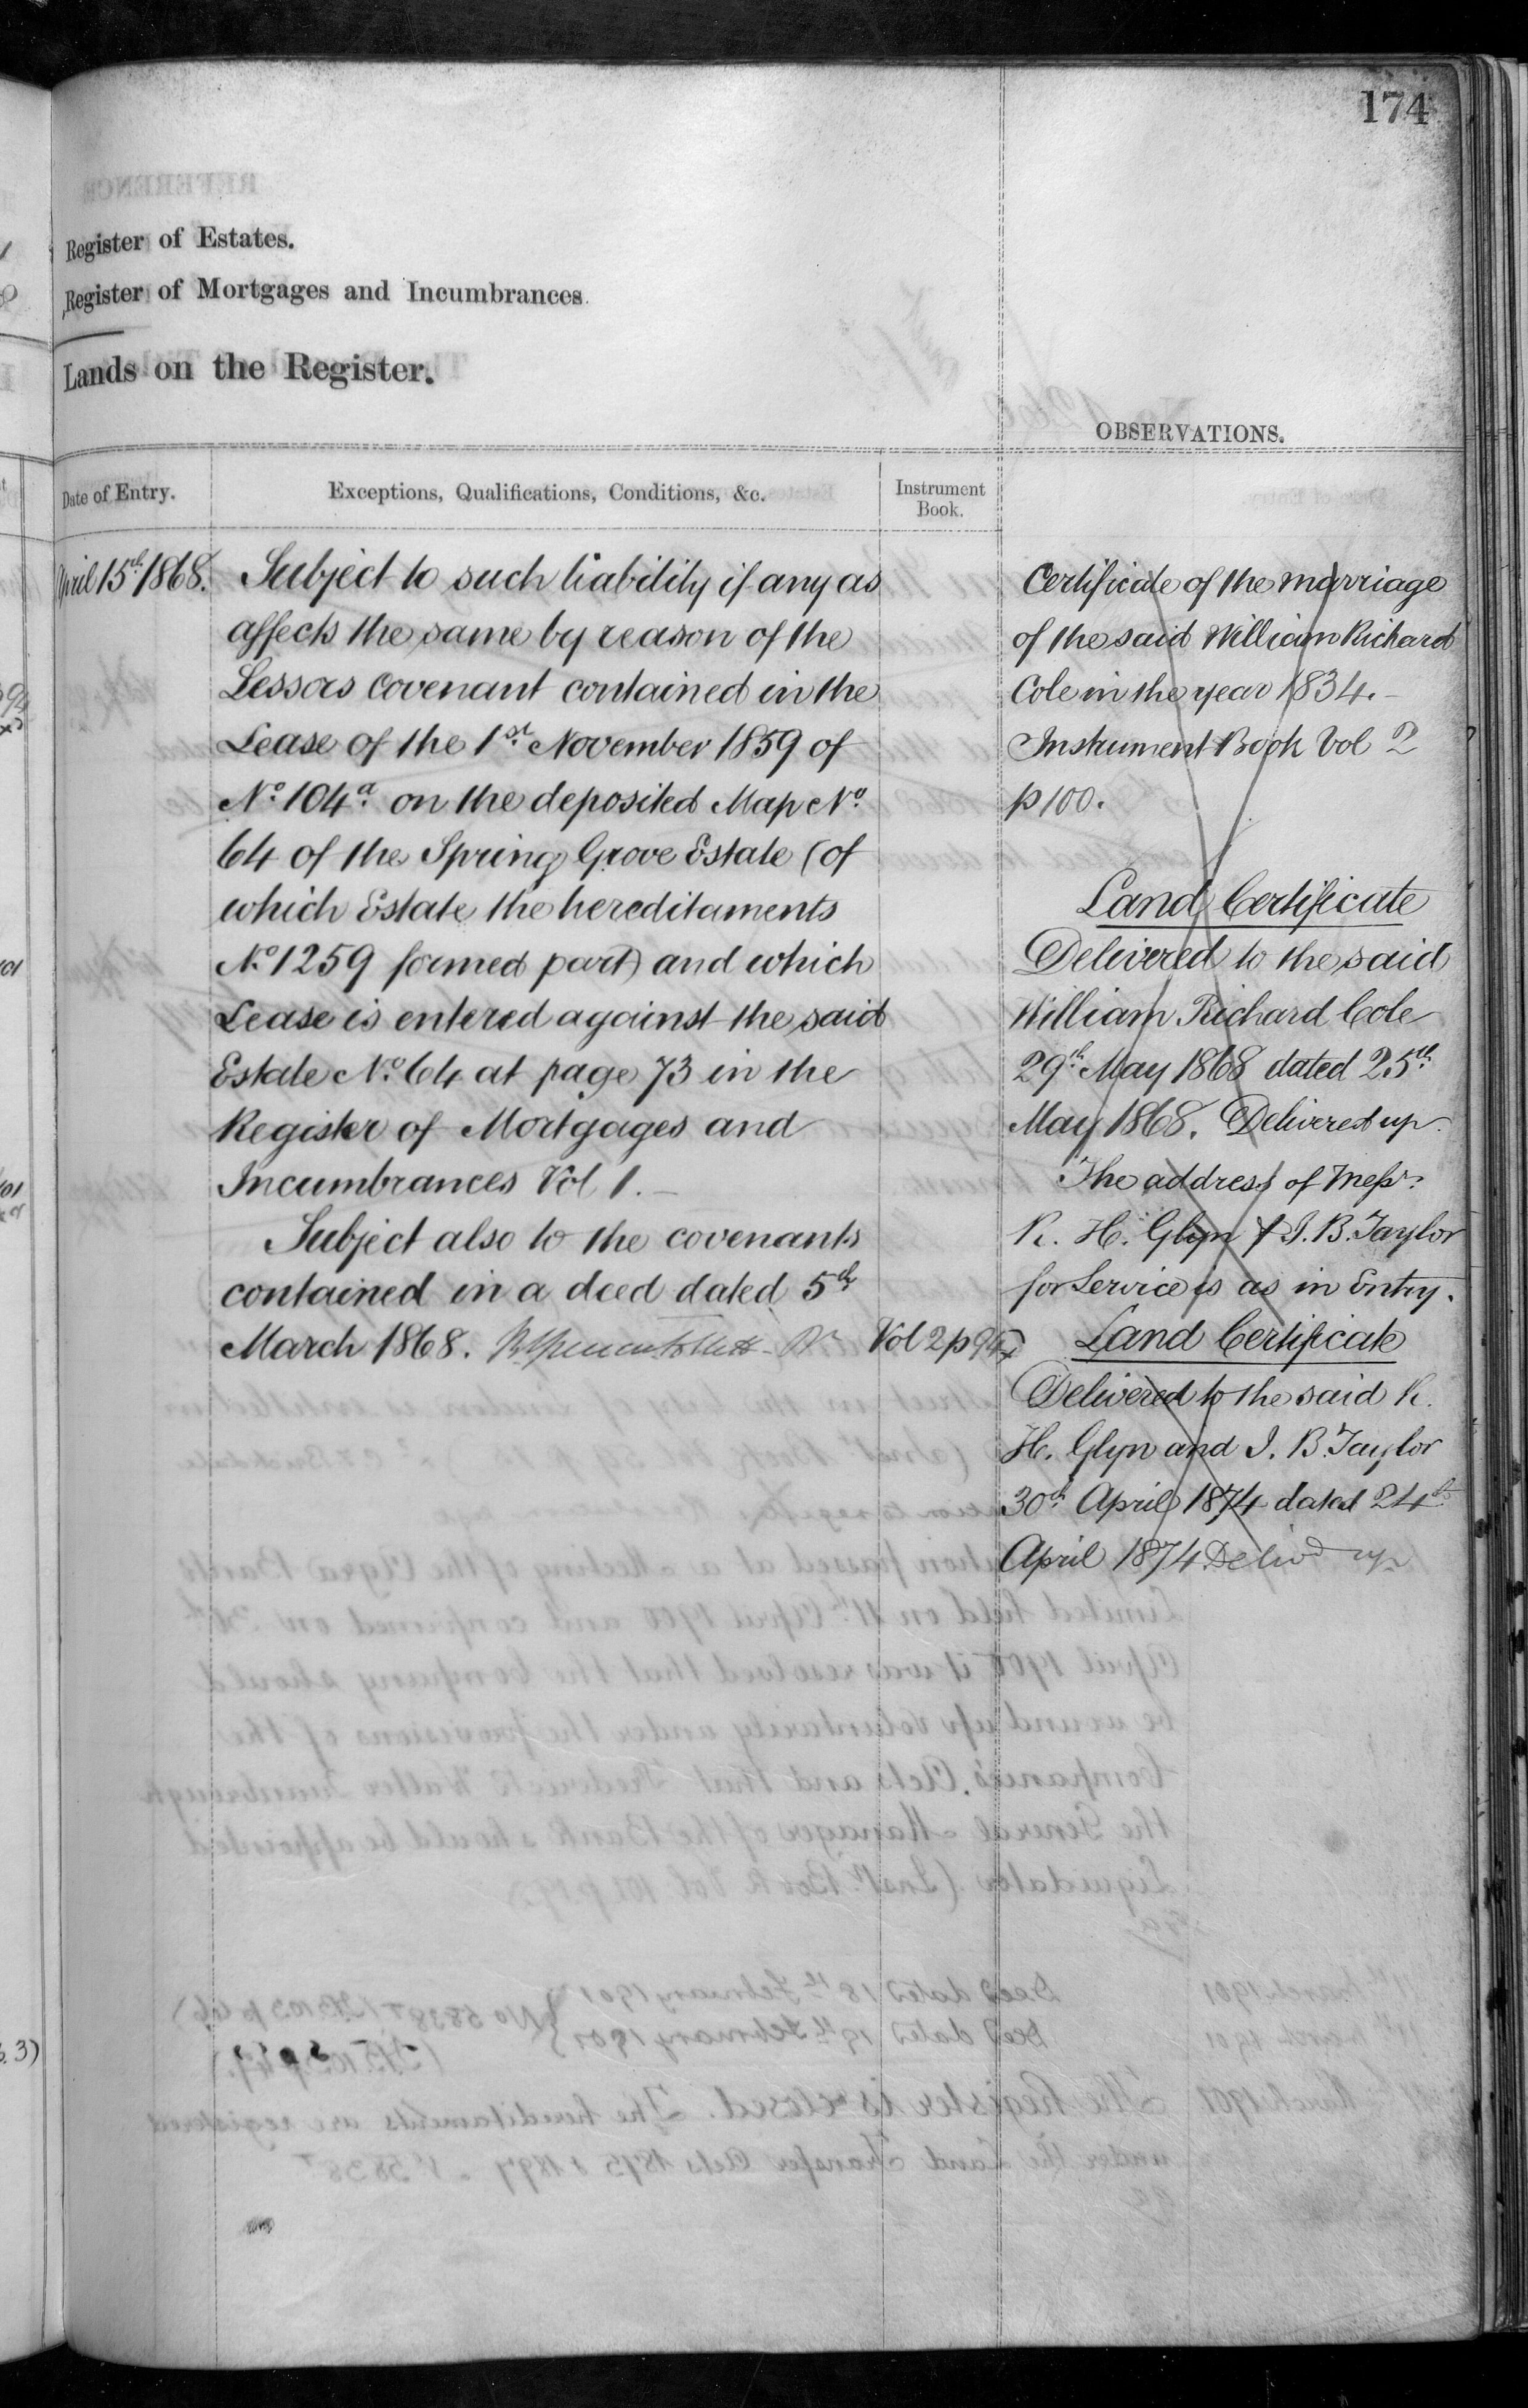 174
Register of Estates.
Register of Mortgages and Incumbrances.
Lands on the Register.
OBSERVATIONS.
Date of Entry.
Exceptions, Qualifications, Conditions, &c.
Instrument
Book.
April 15th 1868.
Subject to such liability if any as
affects the same by reason of the
Lessors covenant contained in the
Lease of the 1st November 1859 of
No. 104a on the deposited Map No.
64 of the Spring Grove Estate (of
which Estate the hereditaments
No. 1259 formed part) and which
Lease is entered against the said
Estate No. 64 at page 73 in the
Register of Mortgages and
Incumbrances Vol 1.—
Subject also to the covenants
contained in a deed dated 5th
March 1868.
Vol 2 p 94
Certificate of the marriage
of the said William Richard
Cole in the year 1834.—
Instrument Book Vol 2
p 100.
Land Certificate
Delivered to the said
William Richard Cole
29th May 1868 dated 25th
May 1868. Delivered up.
The address of Messrs.
R. H. Glyn & I. B. Taylor
for Service is as in Entry.
Land Certificate
Delivered to the said R.
H. Glyn and I. B. Taylor
30th April 1874 dated 24th
April 1874 Delivd up